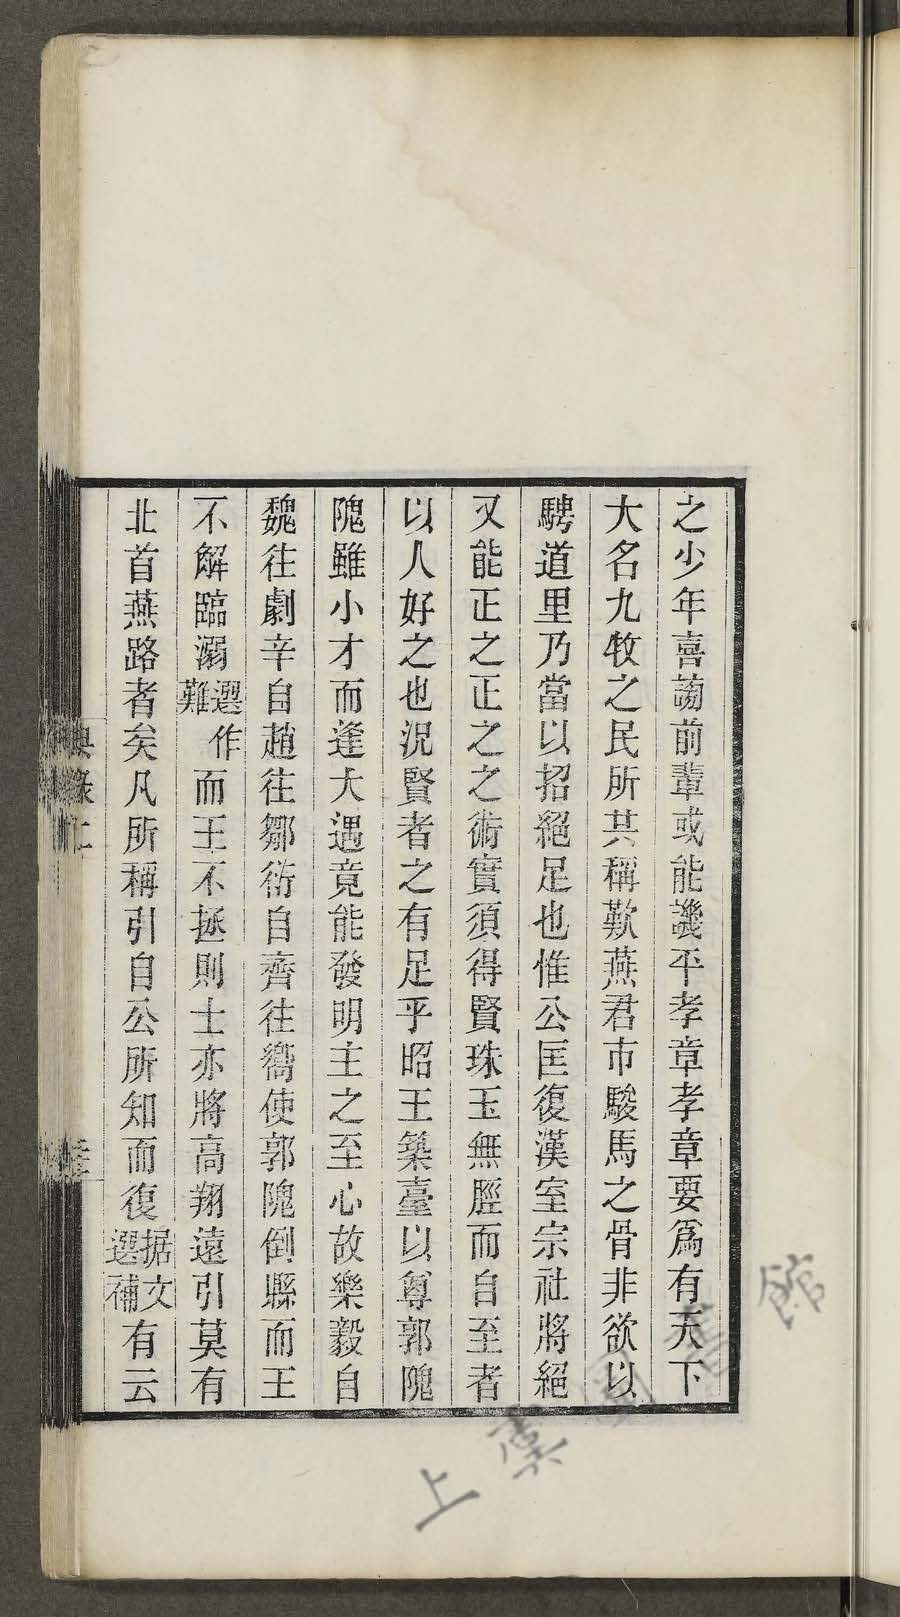 之少年喜謗前輩或能譏平孝章孝章要爲有天下
大名九牧之民所共稱歎燕君市駿馬之骨非欲以
騁道里乃當以招絕足也惟公匡復漢室宗社將絕
又能正之正之之術實須得賢珠玉無脛而自至者
以人好之也況賢者之有足乎昭王築臺以尊郭隗
隗雖小才而逢大遇竟能發明主之至心故樂毅自
魏往劇辛自趙往鄒衍自齊往嚮使郭隗倒縣而王
不解臨溺選作難而王不拯則士亦將高翔遠引莫有
北首燕路者矣凡所稱引自公所知而復据文選補有云
典錄上
上虞圖書館